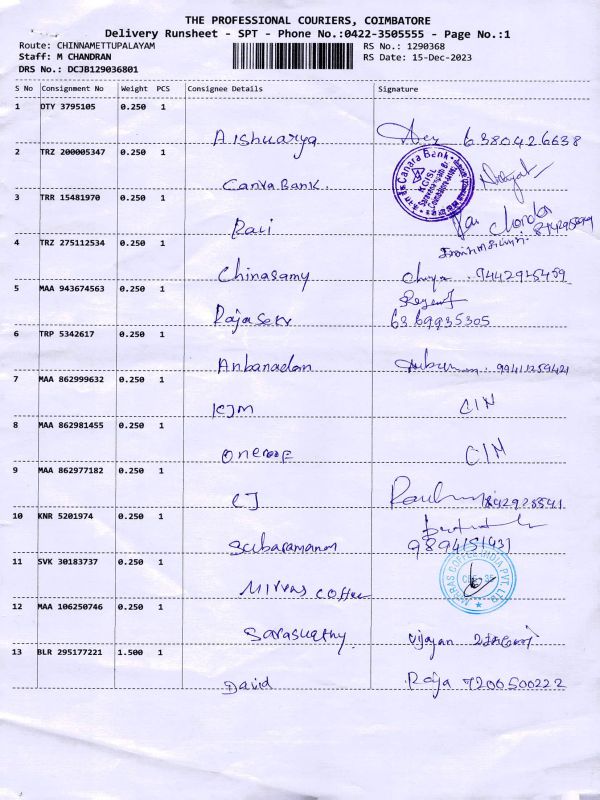 THE PROFESSIONAL COURIERS, COIMBATORE
Delivery Runsheet - SPT - Phone No.:0422-3505555 - Page No.:1
Route: CHINNAMETTUPALAYAM RS No.: 1290368
Staff: M CHANDRAN RS Date: 15-Dec-2023
DRS No.: DCJB129036801
S No Consignment No Weight PCS Consignee Details Signature
1 DTY 3795105 0.250 1
Aishwarya 6380426638
2 TRZ 200005347 0.250 1
Canra Bank Canara Bank
3 TRR 15481970 0.250 1
Ravi Chandra
4 TRZ 275112534 0.250 1
Chinasamy 9442915459
5 MAA 943674563 0.250 1
Rajasekr 6369935305
6 TRP 5342617 0.250 1
Anbanadan
7 MAA 862999632 0.250 1
KJM C/N
8 MAA 862981455 0.250 1
C/N
9 MAA 862977182 0.250 1
CJ
10 KNR 5201974 0.250 1
Subaramanam 9894151431
11 SVK 30183737 0.250 1
coffee
12 MAA 106250746 0.250 1
Sarasuathy Vijayan
13 BLR 295177221 1.500 1
David Raja 7200500222